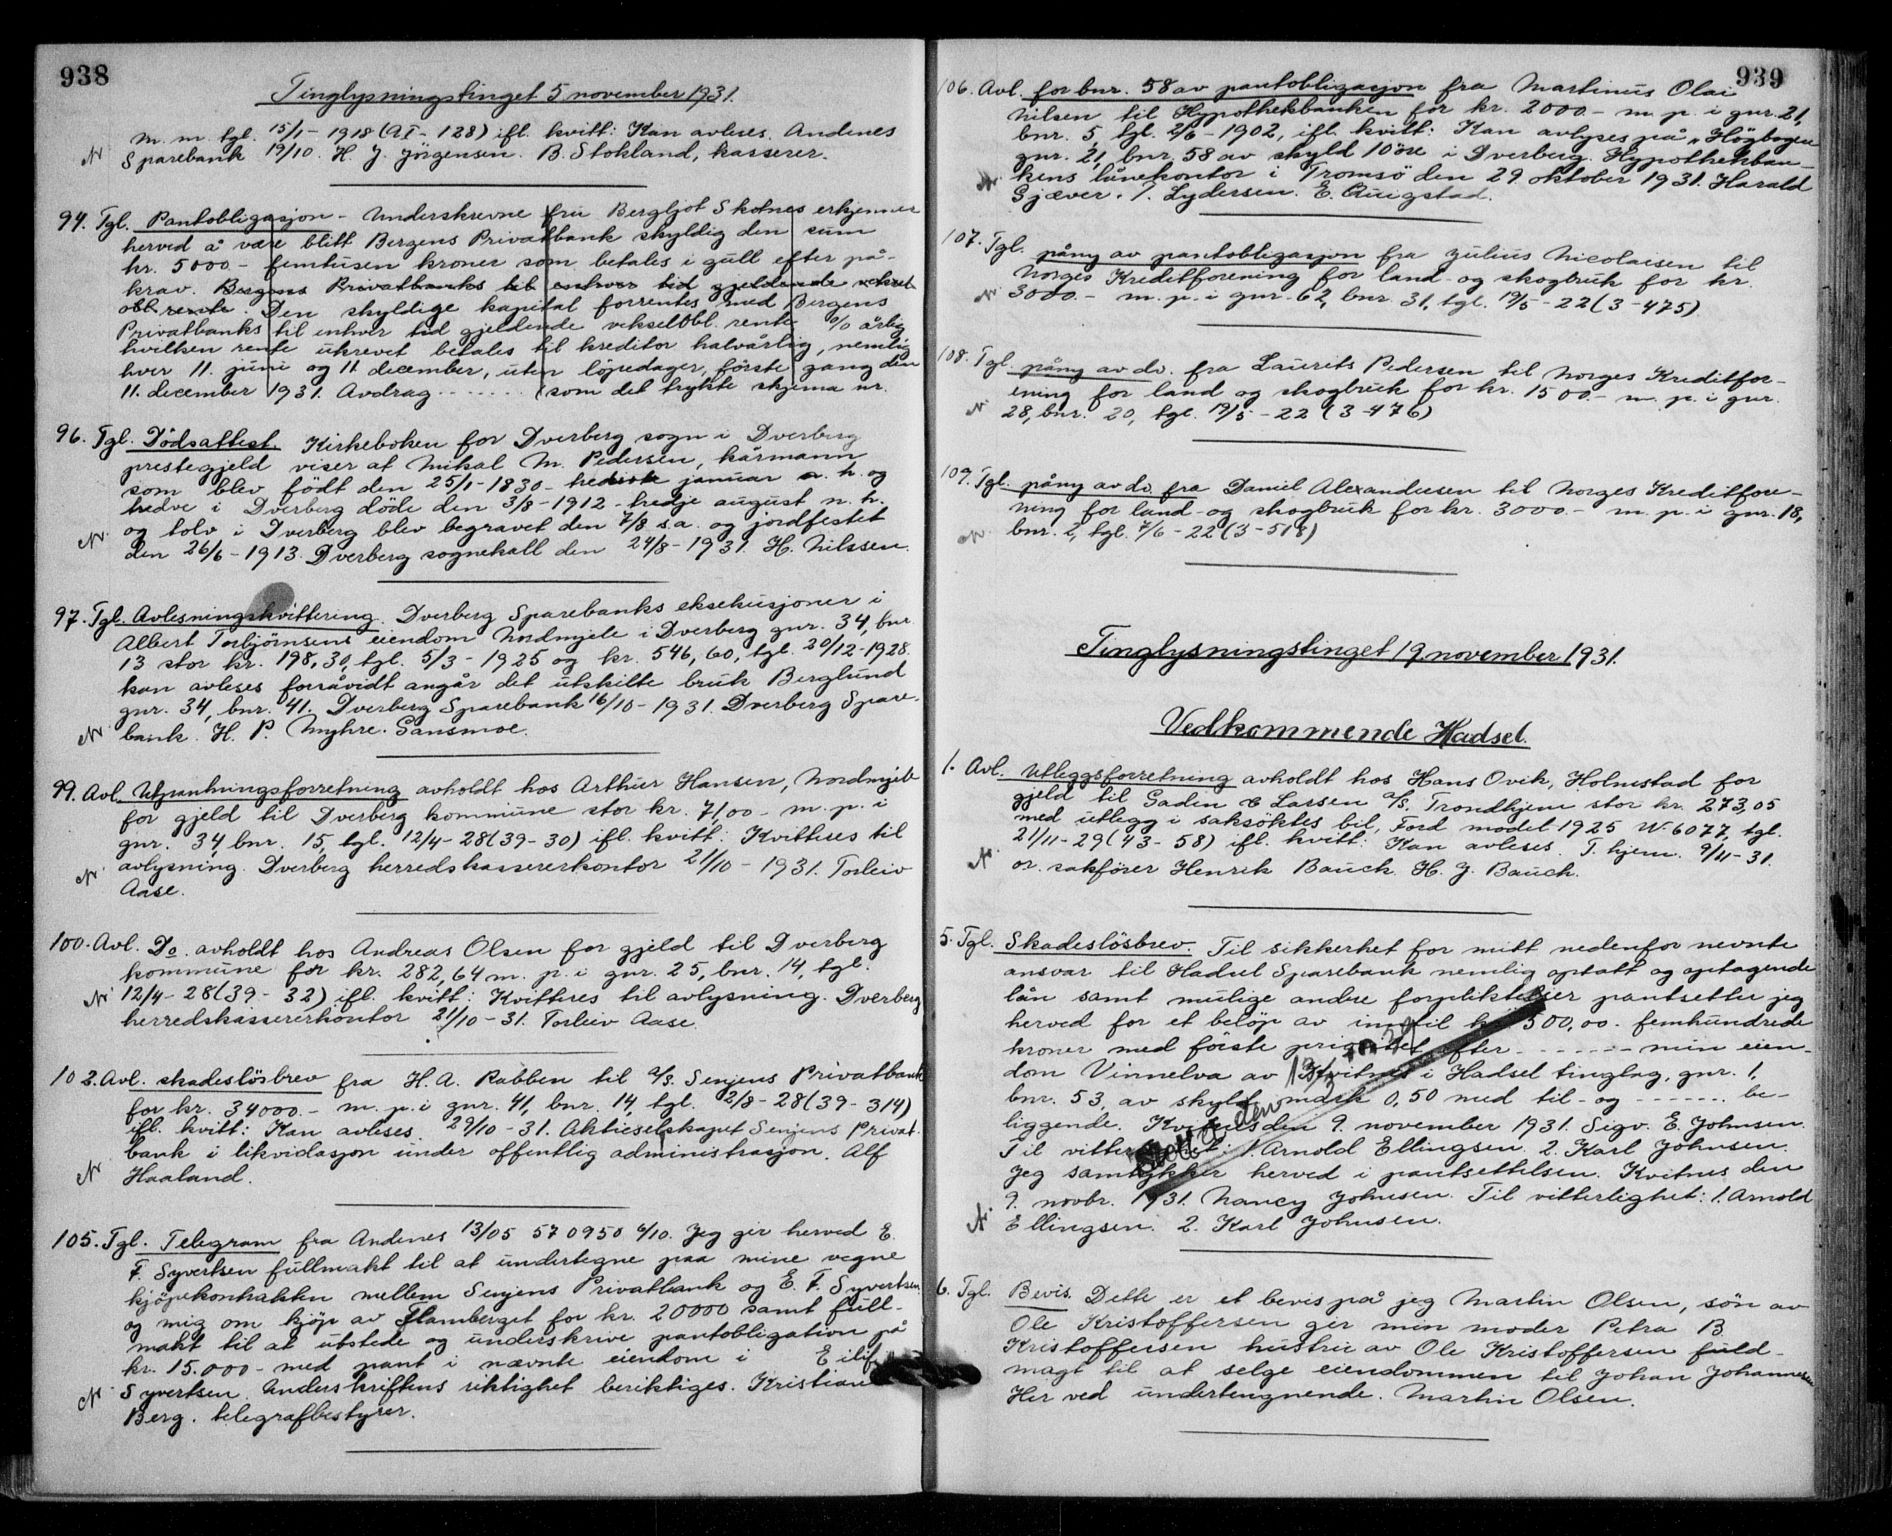 938
Tinglysningstinget 5 november 1931.
m. m. tgl. 15/1-1918 (A.I-128) ifl. kvitt: Kan avleses. Andenes
N. Sparebank 19/10. H. J. Jörgensen. B. Stokland, kasserer.
94. Tgl. Pantobligasjon - Underskrevne fru Bergljot Skotnes erkjenner
herved å være blitt Bergens Privatbank skyldig den sum
kr. 5000.- femtusen kroner som betales i gull efter på-
krav. Bergens Privatbanks til enhver tid gjeldende veksel
obl. rente. Den skyldige kapital forrentes med Bergens
Privatbanks til enhver tid gjeldende vekselobl. rente % årlig
hvilken rente ukrevet betales til kreditor halvårlig, nemlig
hver 11. juni og 11 december, uten löpedager, förste gang den
11. december 1931. Avdrag . . . . . . . (som det trykte skjema nr.
96. Tgl. Dödsattest. Kirkeboken for Dverberg sogn i Dverberg
prestegjeld viser at Mikal M. Pedersen, kårmann
som blev födt den 25/1-1830 - januar a. h. og
tredve i Dverberg döde den 3/8-1912 - tredje august n. h.
N. og tolv i Dverberg blev begravet den 7/8 s.a. og jordfestet
den 26/6-1913. Dverberg sognekall den 24/8-1931. H. Nilssen.
97. Tgl. Avlesningskvittering. Dverberg Sparebanks eksekusjoner i
Albert Torbjörnsens eiendom Nordmjele i Dverberg gnr. 34, bnr.
13 stor kr. 198,30, tgl. 5/3-1925 og kr. 546,60, tgl. 20/12-1928.
kan avleses forsåvidt angår det utskilte bruk Berglund
gnr. 34, bnr. 41. Dverberg Sparebank 16/10-1931. Dverberg Spare-
N. bank. H. P. Myhre. Sansmoe.
99. Avl. Utpantningsforretning avholdt hos Arthur Hansen, Nordmjele
for gjeld til Dverberg kommune stor kr. 71,00 - m. p. i
gnr. 34, bnr. 15, tgl. 12/4-28 (39-30) ifl. kvitt: Kvitteres til
N. avlysning. Dverberg herredskassererkontor 21/10-1931. Torleiv
Aase.
100. Avl. Do. avholdt hos Andreas Olsen for gjeld til Dverberg
kommune for kr. 282,64 m. p. i gnr. 25, bnr. 14, tgl.
N. 12/4-28 (39-32) ifl. kvitt: Kvitteres til avlysning. Dverberg
herredskassererkontor 21/10-31. Torleiv Aase.
103. Avl. skadeslösbrev fra H. A. Rabben til A/S. Senjens Privatbank
for kr. 34000.- m. p. i gnr. 41, bnr. 14, tgl. 2/8-28 (39-314)
ifl. kvitt: Kan avleses. 29/10-31. Aktieselskapet Senjens Privat-
bank i likvidasjon under offentlig administrasjon. Alf
N. Haaland.
105. Tgl. Telegram fra Andenes 13/05 57 0950 6/10. Jeg gir herved E.
F. Syvertsen fullmakt til at undertegne paa mine vegne
kjöpekontrakten mellem Senjens Privatbank og E. F. Syvertsen
og mig om kjöp av Stamberget for kr. 20000 samt full-
makt til at utstede og underskrive pantobligation på
kr. 15.000 - med pant i nævnte eiendom i Eilif
N. Syvertsen. Underskriftens riktighet beriktiges. Kristian
Berg. telegrafbestyrer.
939
106. Avl. for bnr. 58 av pantobligasjon fra Martinus Olai
Nilsen til Hypothekbanken for kr. 2000.- m. p. i gnr. 21,
bnr. 5, tgl. 2/6-1902, ifl. kvitt: Kan avlyses på "Högbogen
gnr. 21, bnr. 58 av skyld 10 öre i Dverberg. Hypothekban-
N. kens lånekontor i Tromsö den 29 oktober 1931. Harald
Gjæver. T. Lydersen. E. Quigstad.
107. Tgl. påny av pantobligasjon fra Julius Nicolaisen til
Norges Kreditforening for land- og skogbruk for kr.
N. 3000.- m. p. i gnr. 62, bnr. 31, tgl. 19/5-22 (3-475)
108. Tgl. påny av do. fra Laurits Pedersen til Norges Kreditfor-
ening for land og skogbruk for kr. 1500.- m. p. i gnr.
N. 28, bnr. 20, tgl. 19/5-22 (3-476)
109. Tgl. påny av do. fra Daniel Alexandersen til Norges Kreditfore-
ning for land- og skogbruk for kr. 3000.- m. p. i gnr. 18,
N. bnr. 2, tgl. 7/6-22 (3-518)
Tinglysningstinget 19. november 1931.
Vedkommende Hadsel.
1. Avl. Utleggsforretning avholdt hos Hans Ovik, Holmstad for
gjeld til Gaden & Larsen A/S. Trondhjem stor kr. 273,05
med utlegg i saksöktes bil, Ford model 1925 W-6077, tgl.
21/11-29 (43-58) ifl. kvitt: Kan avleses. T.hjem. 9/11-31.
N. or. sakförer Henrik Bauck. H. J. Bauch.
5. Tgl. Skadeslösbrev. Til sikkerhet for mitt nedenfor nevnte
ansvar til Hadsel Sparebank nemlig optatt og optagende
lån samt mulige andre forpliktelser pantsetter jeg
herved for et belöp av inntil kr. 500,00. femhundrede
kroner med förste prioritet efter - - - - - - - min eien-
dom Vinnelva av Kvitnes i Hadsel tinglag, gnr. 1,
bnr. 53, av skyld mark 0,50 med til- og - - - - - - - be-
liggende. Kvitnes den 9. november 1931. Sigv. E. Johnsen.
Til vitterlighet: 1. Arnold Ellingsen. 2. Karl Johnsen.
Jeg samtykker herved i pantsettelsen. Kvitnes den
9. novbr. 1931. Nancy Johnsen. Til vitterlighet: 1. Arnold
N. Ellingsen. 2. Karl Johnsen.
6. Tgl. Bevis. Dette er et bevis på jeg Martin Olsen, sön av
Ole Kristoffersen gir min moder Petra B.
Kristoffersen hustru av Ole Kristoffersen fuld-
magt til at selge eiendommen til Johan Johannesen
Her ved undertengnende. Martin Olsen.